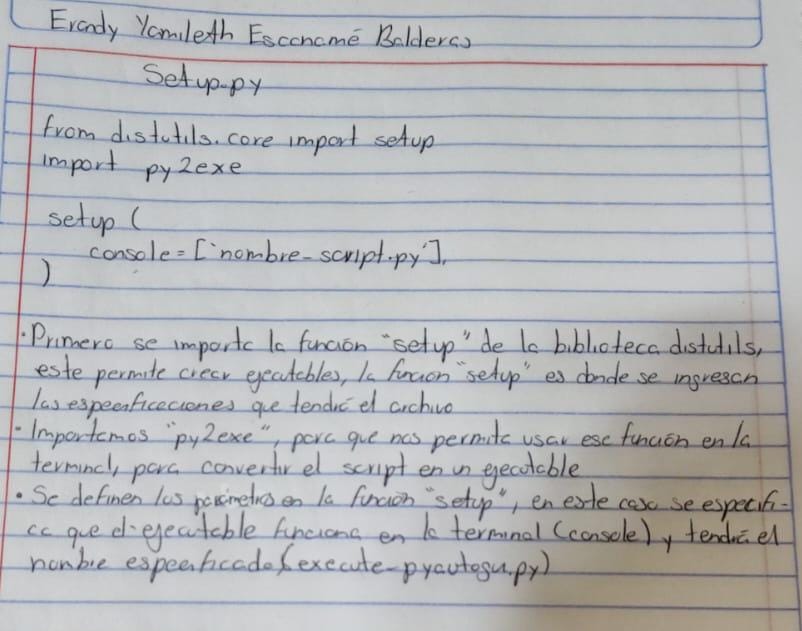 Erandy Yamileth Escanamé Balderas
Setup.py
from distutils.core import setup
import py2exe
setup (
console = ['nombre-script.py'],
)
• Primero se importa la función "setup" de la biblioteca distutils,
este permite crear ejecutables, la función "setup" es donde se ingresan
las especificaciones que tendrá el archivo
• Importamos "py2exe", para que nos permita usar ese función en la
terminal, para convertir el script en un ejecutable
• Se definen los parámetros en la función "setup", en este caso se especifi-
ca que el ejecutable funciona en la terminal (console) y tendrá el
nombre especificado (execute-pyautogui.py)